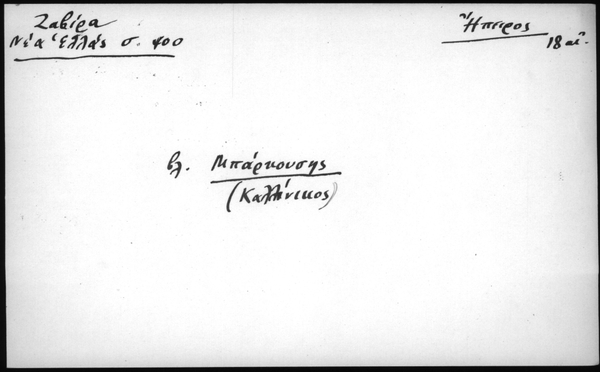 Ζαβίρα
Νέα Ἑλλάς σ. 400
Ἤπειρος
18 αἰ.
βλ. Μπάρκουσης
(Καλλίνικος)